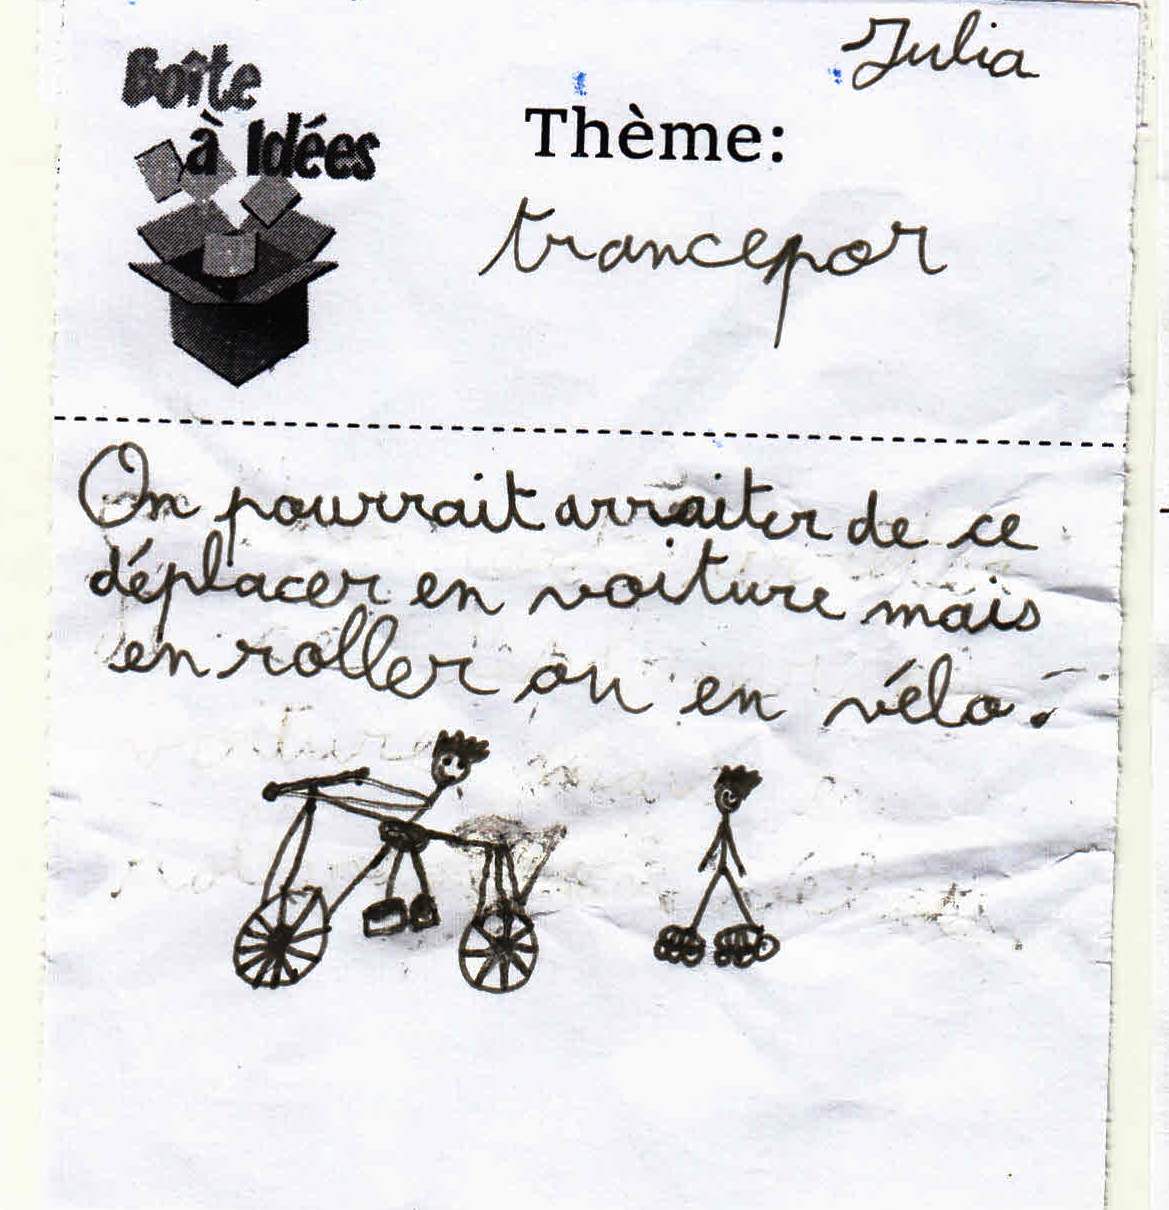 Julia
Boîte
à Idées
Thème:
trancepor
On pourrait arraiter de ce
déplacer en voiture mais
en roller ou en vélo.